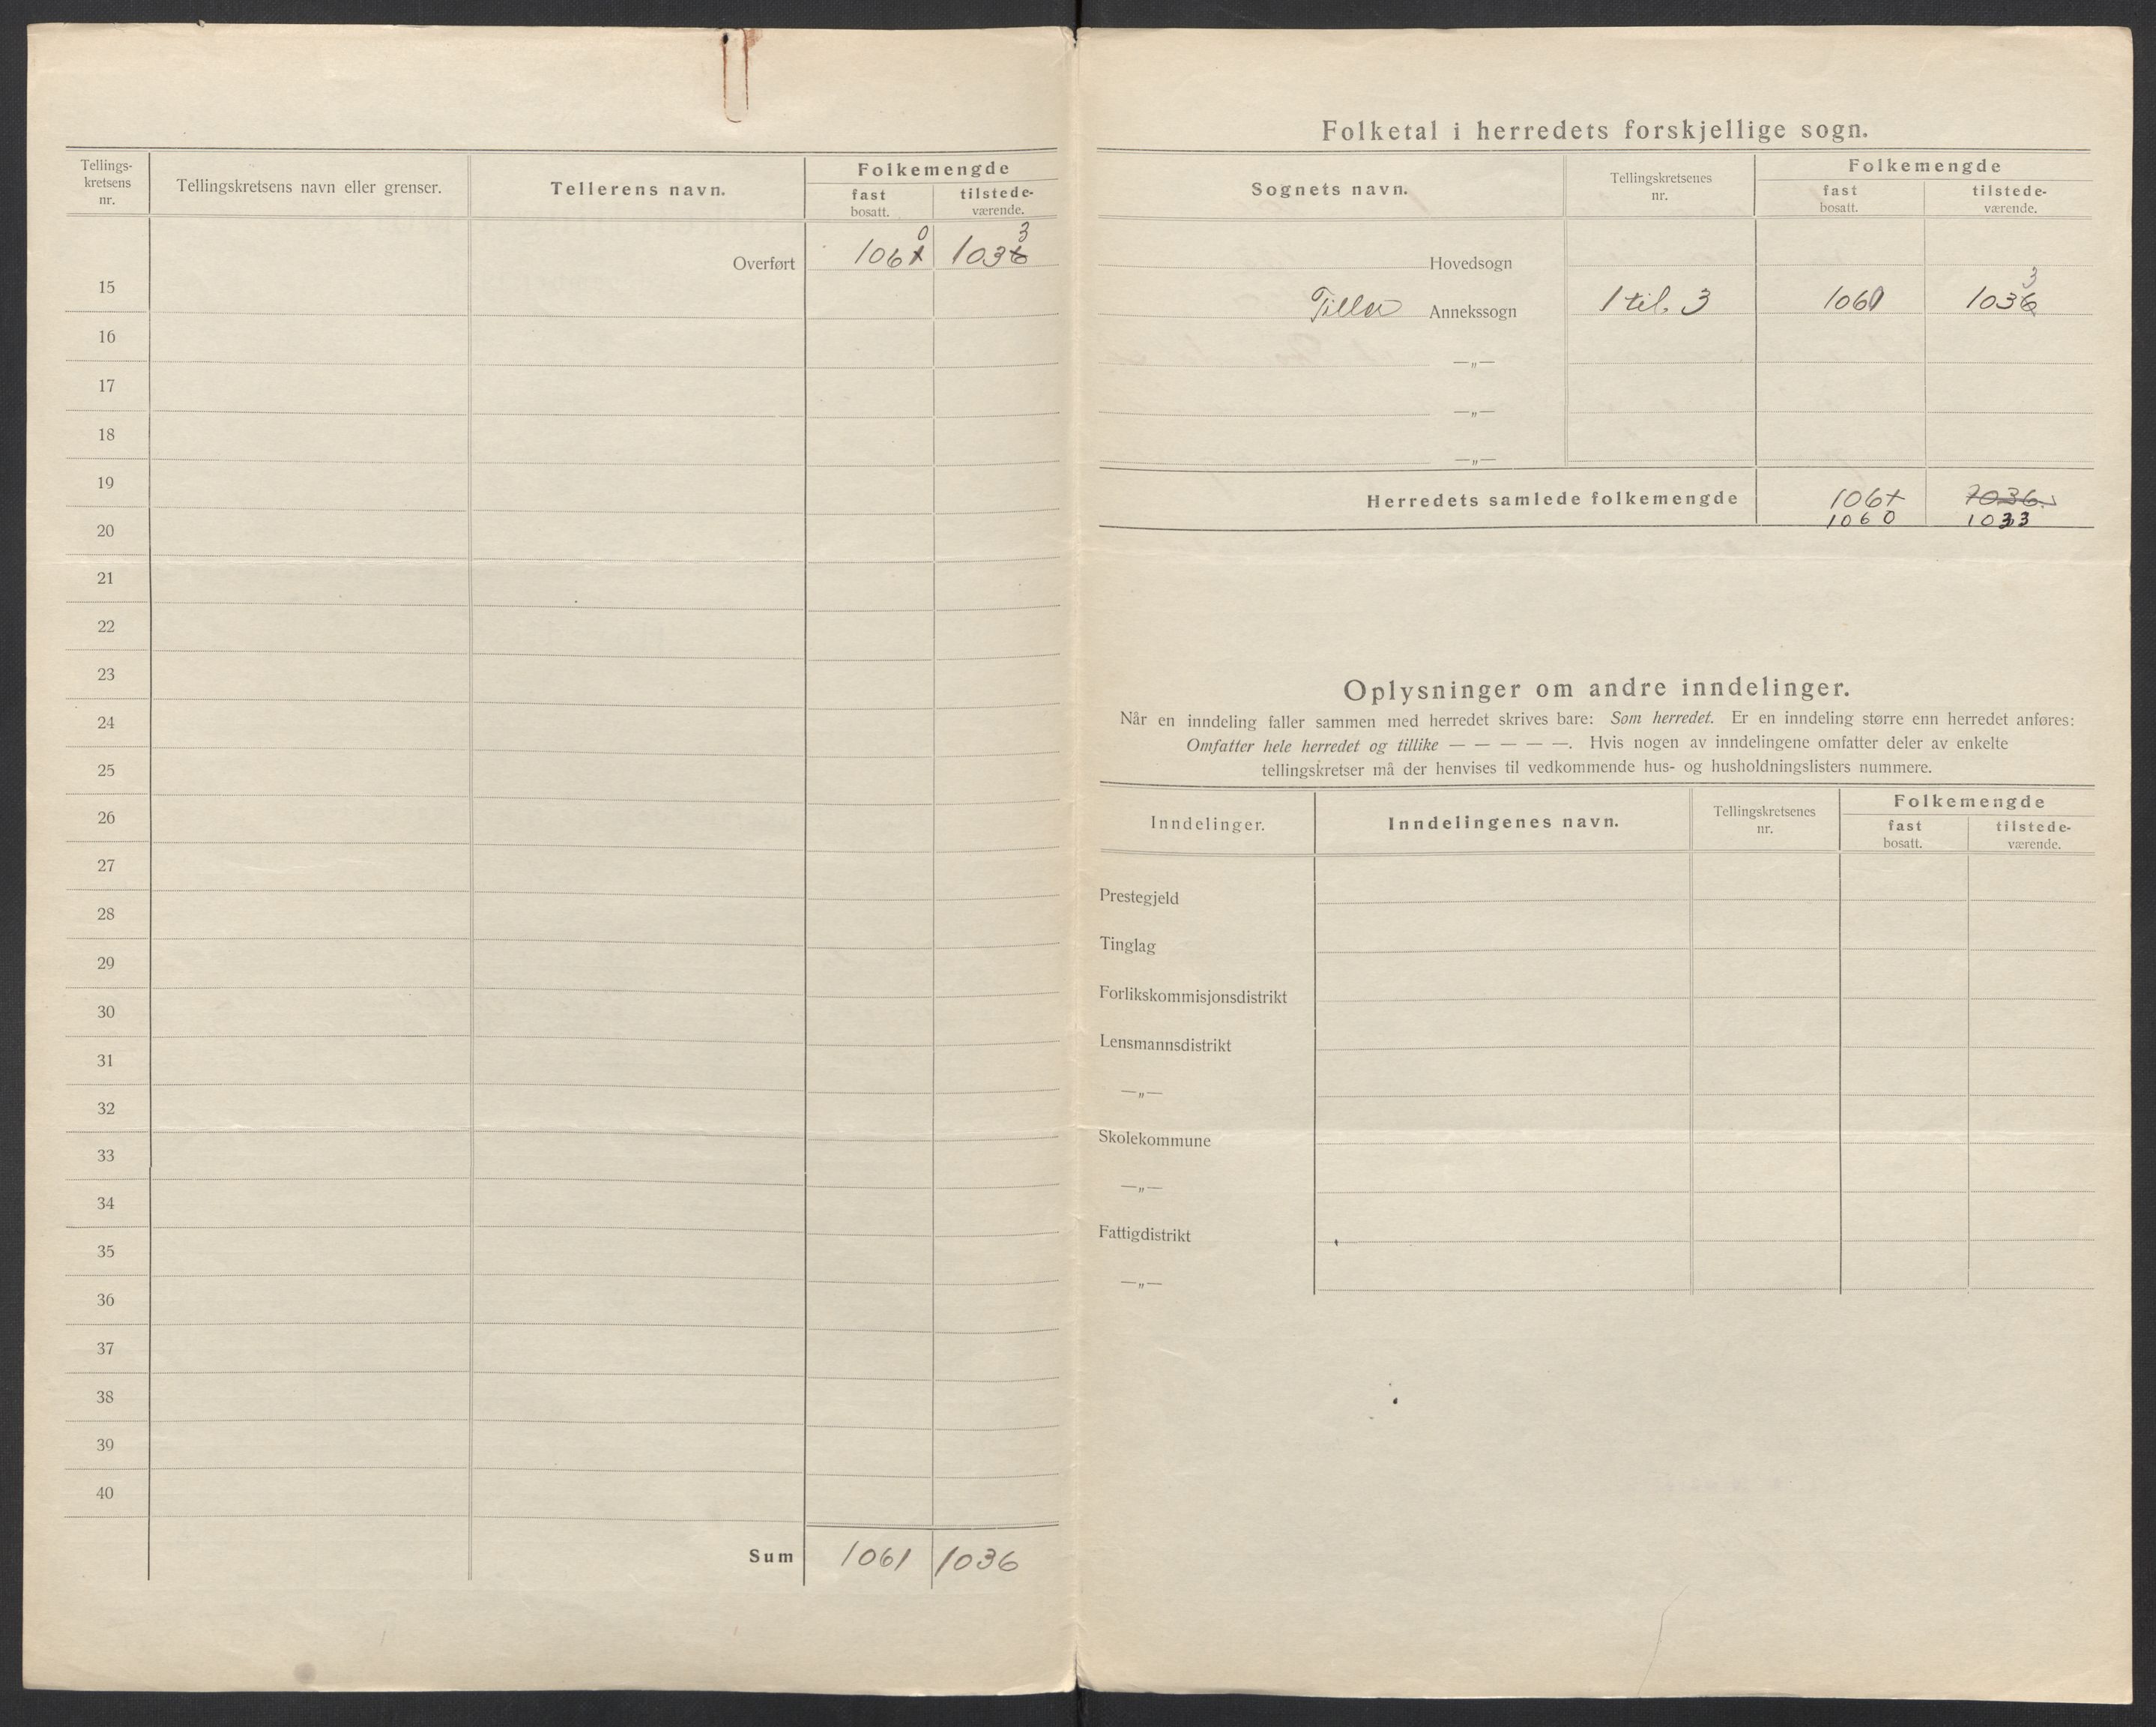 Tellings-
kretsens
nr.
Tellingskretsens navn eller grenser.
Tellerens navn.
Folkemengde
fast
bosatt.
tilstede-
værende.
0 3
Overført 1061 1036
15
16
17
18
19
20
21
22
23
24
25
26
27
28
29
30
31
32
33
34
35
36
37
38
39
40
Sum 1061 1036
Folketal i herredets forskjellige sogn.
Sognets navn.
Tellingskretsenes
nr.
Folkemengde
fast
bosatt.
tilstede-
værende.
Hovedsogn
3
Tiller Annekssogn 1 til. 3 1060 1036
—„—
—„—
—„—
Herredets samlede folkemengde 1061 1036
1060 1033
Oplysninger om andre inndelinger.
Når en inndeling faller sammen med herredet skrives bare: Som herredet. Er en inndeling større enn herredet anføres:
Omfatter hele herredet og tillike — — — — —. Hvis nogen av inndelingene omfatter deler av enkelte
tellingskretser må der henvises til vedkommende hus- og husholdningslisters nummere.
Inndelinger.
Inndelingenes navn.
Tellingskretsenes
nr.
Folkemengde
fast
bosatt.
tilstede-
værende.
Prestegjeld
Tinglag
Forlikskommisjonsdistrikt
Lensmannsdistrikt
—„—
Skolekommune
—„—
Fattigdistrikt
—„—